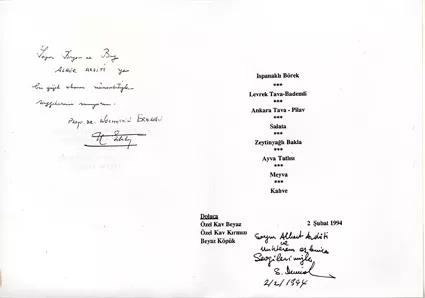 Sayın Bayan ve Bay
ALBER ARDİTİ ye
bu güzel
PROF. DR. NECMETTİN ERBAKAN
Ispanaklı Börek
***
Levrek Tava-Bademli
***
Ankara Tava - Pilav
***
Salata
***
Zeytinyağlı Bakla
***
Ayva Tatlısı
***
Meyva
***
Kahve
Doluca
Özel Kav Beyaz
Özel Kav Kırmızı
Beyaz Köpük
2 Şubat 1994
Sayın Albert Arditi
ve
Muhterem eşlerine
Sevgilerimizle
S. Demirel
2/2/1994